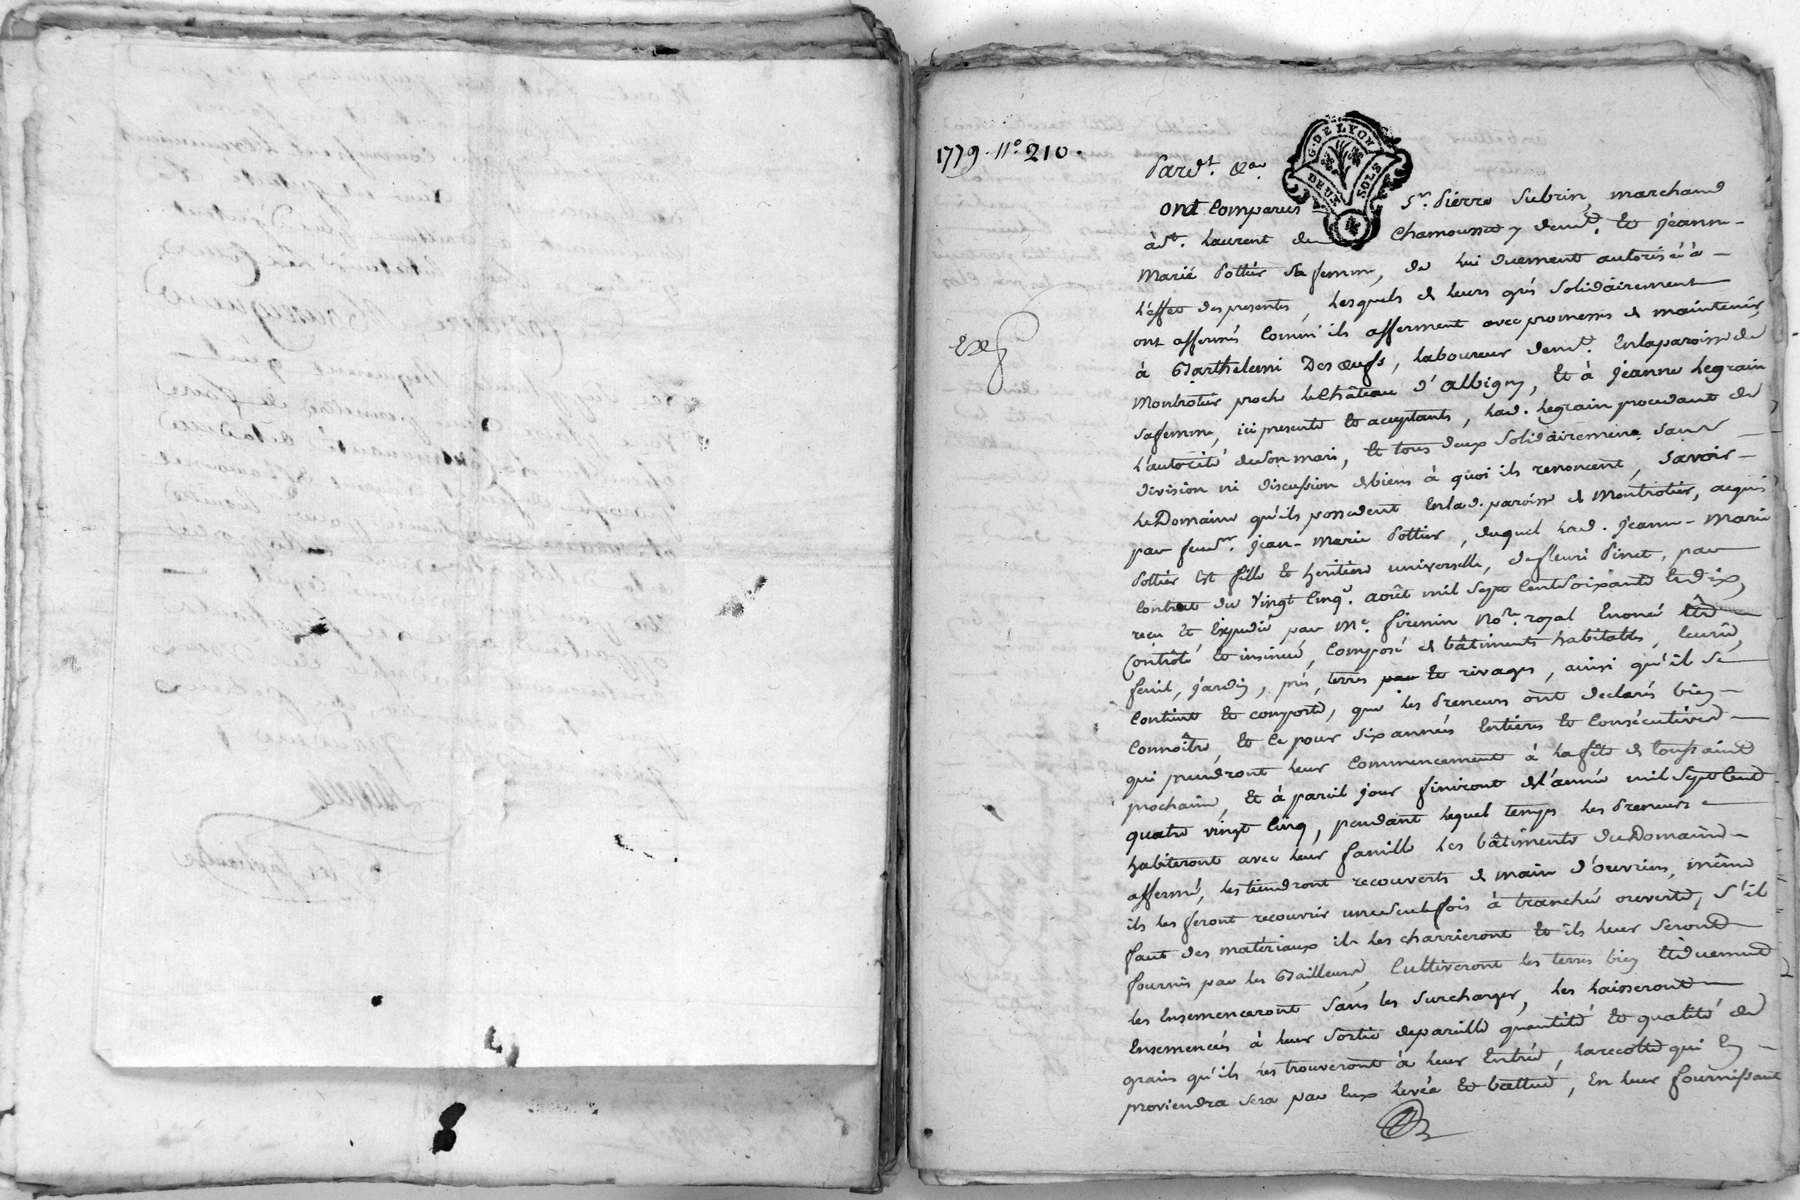 1779. n.° 210.
Pard.t &a.
G. DE LYON
DEUX SOLS
ont comparus Sr. Pierre Subrin, marchand
à St. Laurent de Chamousset y demt. et Jeanne-
Marie Pottier sa femme, de lui duement autorisée à
l'effet des presentes, lesquels de leurs grés solidairement
ont affermés comm'ils afferment avec promesses de maintenir,
Exp
à Barthelemi Desoeufs, laboureur demt. en la paroisse de
Montrotier proche le Château d'Albigny, et à Jeanne Legrain
sa femme, ici presents et acceptants, lad. Legrain procedant de
l'autorité de son mari, et tous deux solidairement sans
division ni discussion de biens à quoi ils renoncent, savoir
le Domaine qu'ils possedent en lad. paroisse de Montrotier, acquis
par feu Sr. Jean-Marie Pottier, duquel lad. Jeanne-Marie
Pottier est fille et heritiere universelle, de fleuri Pinet, par
contrat du vingt cinq.e août mil sept cent soixante et dix,
reçu et expedié par Me. firmin Nore. royal Enoncé
Contrôlé et insinué, composé de bâtiments habitables,
jardin, prés, terres et rivages, ainsi qu'il se
contient et comporte, que les Preneurs ont declarés bien
connoître, et ce pour six années entieres et consécutives
qui prendront leur commencement à la fête de toussaint
prochaine, et à pareil jour finiront de l'année mil sept cent
quatre vingt cinq, pendant lequel temps les Preneurs
habiteront avec leur famille les bâtiments du Domaine
affermé, les tiendront recouverts de main d'ouvriers, même
ils les feront recouvrir une seule fois à tranche ouverte, s'il
faut des matériaux ils les charrieront et ils leur seront
fournis par les Bailleurs, Cultiveront les terres bien et duement
les Ensemenceront sans les surcharger, les laisseront
Ensemencés à leur sortie de pareille quantité et qualité de
grains qu'ils les trouveront à leur Entrée, la recolte qui en
proviendra sera par eux levée et battue, en leur fournissant